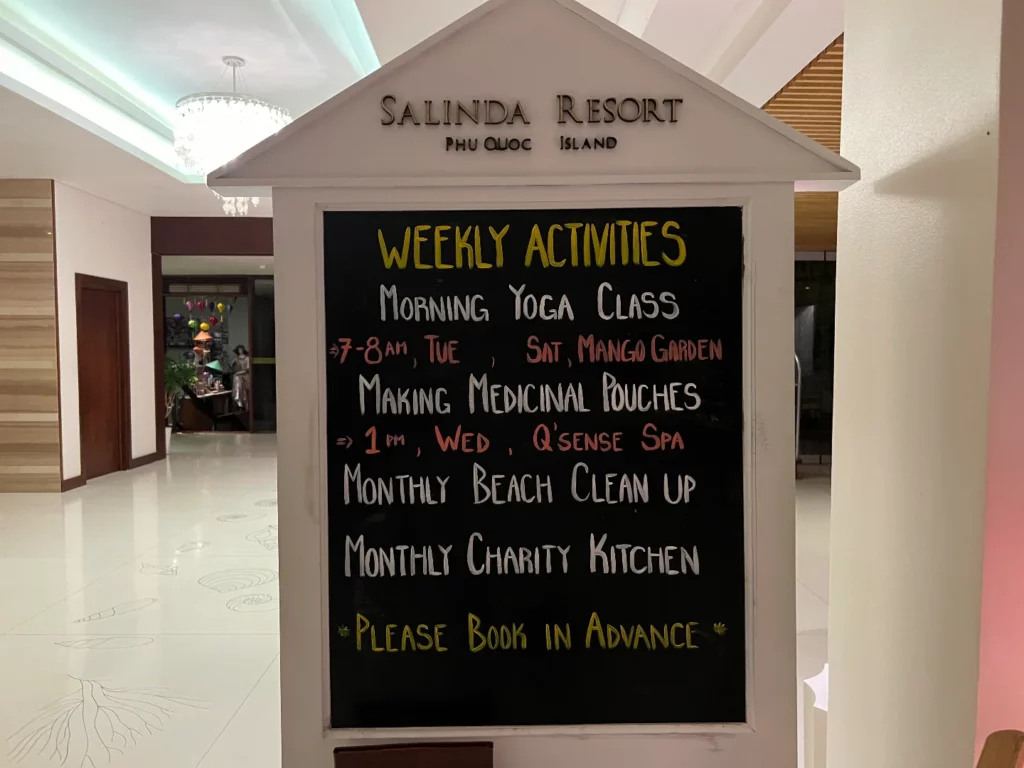 SALINDA RESORT
PHU QUOC ISLAND
WEEKLY ACTIVITIES
MORNING YOGA CLASS
⇒7-8AM, TUE , SAT, MANGO GARDEN
MAKING MEDICINAL POUCHES
⇒ 1PM, WED, Q'SENSE SPA
MONTHLY BEACH CLEAN UP
MONTHLY CHARITY KITCHEN
* PLEASE BOOK IN ADVANCE *